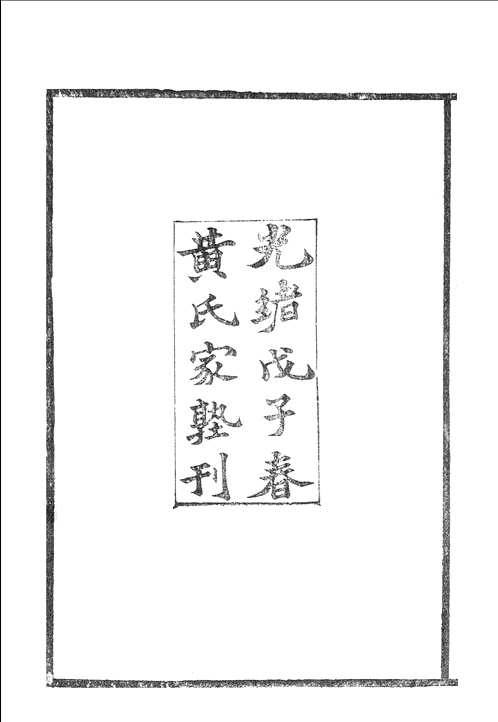 光緒戊子春
黃氏家塾刊